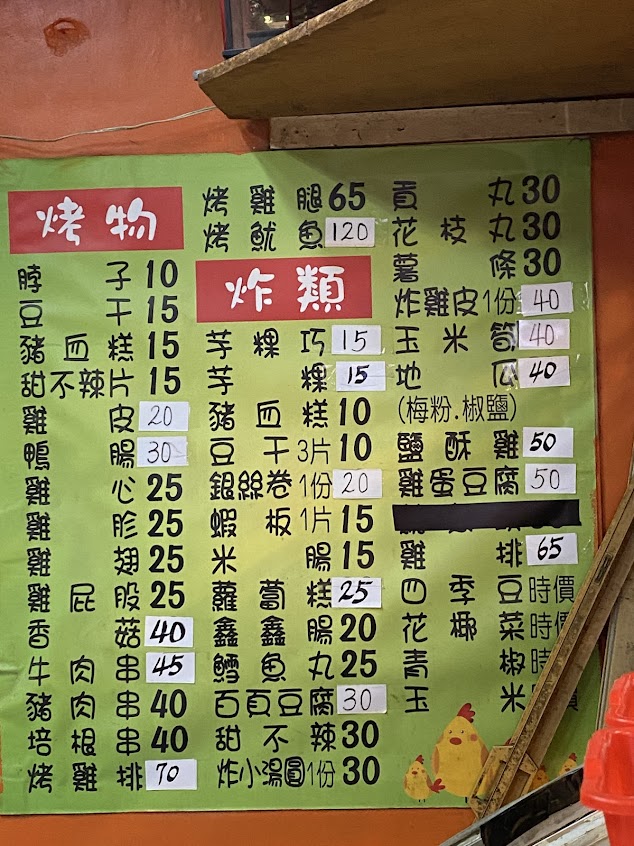 烤物
脖子10
豆干15
豬血糕15
甜不辣片15
雞皮20
鴨腸30
雞心25
雞胗25
雞翅25
雞屁股25
香菇40
牛肉串45
豬肉串40
培根串40
烤雞排70
烤雞腿65
烤魷魚120
炸類
芋粿巧15
芋粿15
豬血糕10
豆干3片10
銀絲卷1份20
蝦板1片15
米腸15
蘿蔔糕25
鑫鑫腸20
鱈魚丸25
百頁豆腐30
甜不辣30
炸小湯圓1份30
貢丸30
花枝丸30
薯條30
炸雞皮1份40
玉米筍40
地瓜40
(梅粉.椒鹽)
鹽酥雞50
雞蛋豆腐50
雞排65
四季豆時價
花椰菜時價
青椒時
玉米